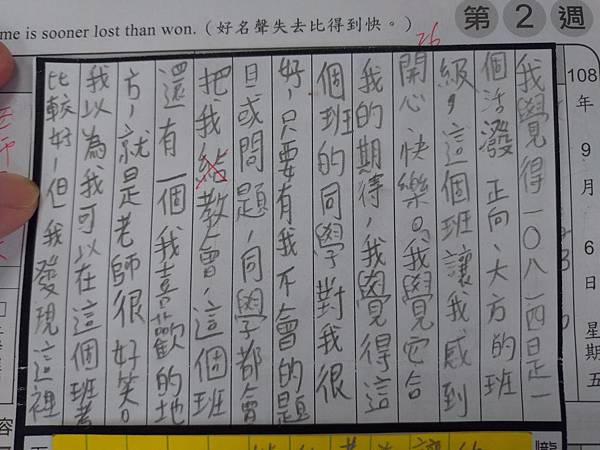 me is sooner lost than won.(好名聲失去比得到快。)
第2週
108年9月6日 星期五
26
我覺得一〇八一四是一
個活潑、正向、大方的班
級,這個班讓我感到
開心、快樂。我覺它合
我的期待,我覺得這
個班的同學對我很
好,只要有我不會的題
目或問題,同學都會
把我給教會,這個班
還有一個我喜歡的地
方,就是老師很好笑。
我以為我可以在這個班考
比較好,但我發現這裡
容